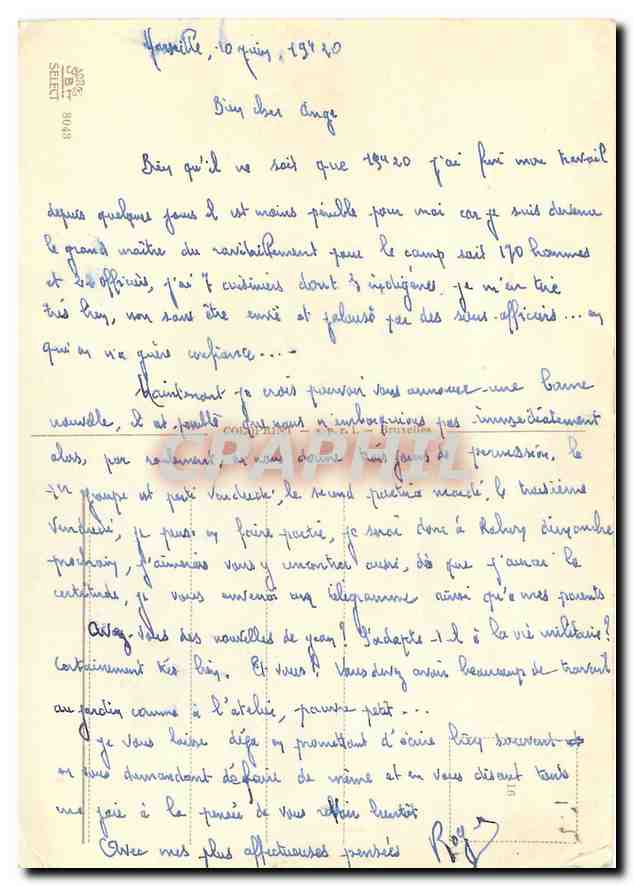 Marseille, 10 juin, 19h20
AGFA
SELECT
8048
Bien cher Ange
Bien qu'il ne soit que 19h20 j'ai fini mon travail
depuis quelques jours il est moins pénible pour moi car je suis devenu
le grand maître du ravitaillement pour le camp soit 170 hommes
et 22 officiers, j'ai 7 cuisiniers dont 3 indigènes. je m'en tire
très bien, non sans être envié et jalousé par des sous-officiers... en
qui on n'a guère confiance....
Maintenant je crois pouvoir vous annoncer une bonne
nouvelle, il est possible que nous n'embarquions pas immédiatement
COLORPRINT Bruxelles
CRAPHIL
alors, par roulement, on nous donne trois jours de permission, le
1er groupe est parti vendredi, le second partira mardi, le troisième
vendredi, je pense en faire partie, je serai donc à dimanche
prochain, j'aimerais vous y rencontrer aussi, dès que j'aurai la
certitude, je vous enverrai un télégramme ainsi qu'à mes parents
Avez-vous des nouvelles de Jean? S'adapte-t-il à la vie militaire?
Certainement très bien. Et vous? Vous devez avoir beaucoup de travail
au jardin comme à l'atelier, pauvre petit...
je vous laisse déjà en promettant d'écrire bien souvent
en vous demandant de faire de même et en vous disant toute
ma joie à la pensée de vous revoir bientôt
16
Avec mes plus affectueuses pensées Roy